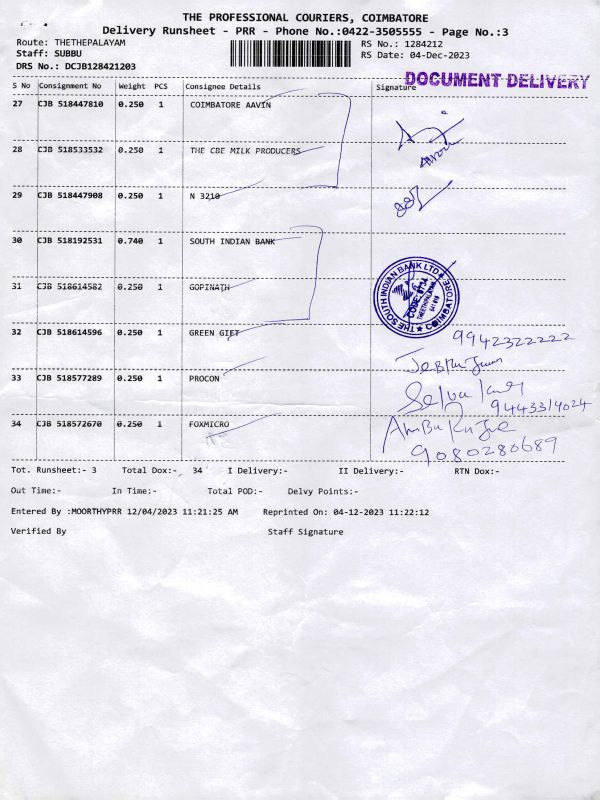 THE PROFESSIONAL COURIERS, COIMBATORE
Delivery Runsheet - PRR - Phone No.:0422-3505555 - Page No.:3
Route: THETHEPALAYAM RS No.: 1284212
Staff: SUBBU RS Date: 04-Dec-2023
DRS No.: DCJB128421203
DOCUMENT DELIVERY
S No Consignment No Weight PCS Consignee Details Signature
27 CJB 518447810 0.250 1 COIMBATORE AAVIN
28 CJB 518533532 0.250 1 THE CBE MILK PRODUCERS
29 CJB 518447908 0.250 1 N 3210
30 CJB 518192531 0.740 1 SOUTH INDIAN BANK
THE SOUTH INDIAN BANK LTD
COIMBATORE
31 CJB 518614582 0.250 1 GOPINATH
32 CJB 518614596 0.250 1 GREEN GIFT
9942322222
33 CJB 518577289 0.250 1 PROCON
9443314024
34 CJB 518572670 0.250 1 FOXMICRO
9080280689
Tot. Runsheet:- 3 Total Dox:- 34 I Delivery:- II Delivery:- RTN Dox:-
Out Time:- In Time:- Total POD:- Delvy Points:-
Entered By :MOORTHYPRR 12/04/2023 11:21:25 AM Reprinted On: 04-12-2023 11:22:12
Verified By Staff Signature